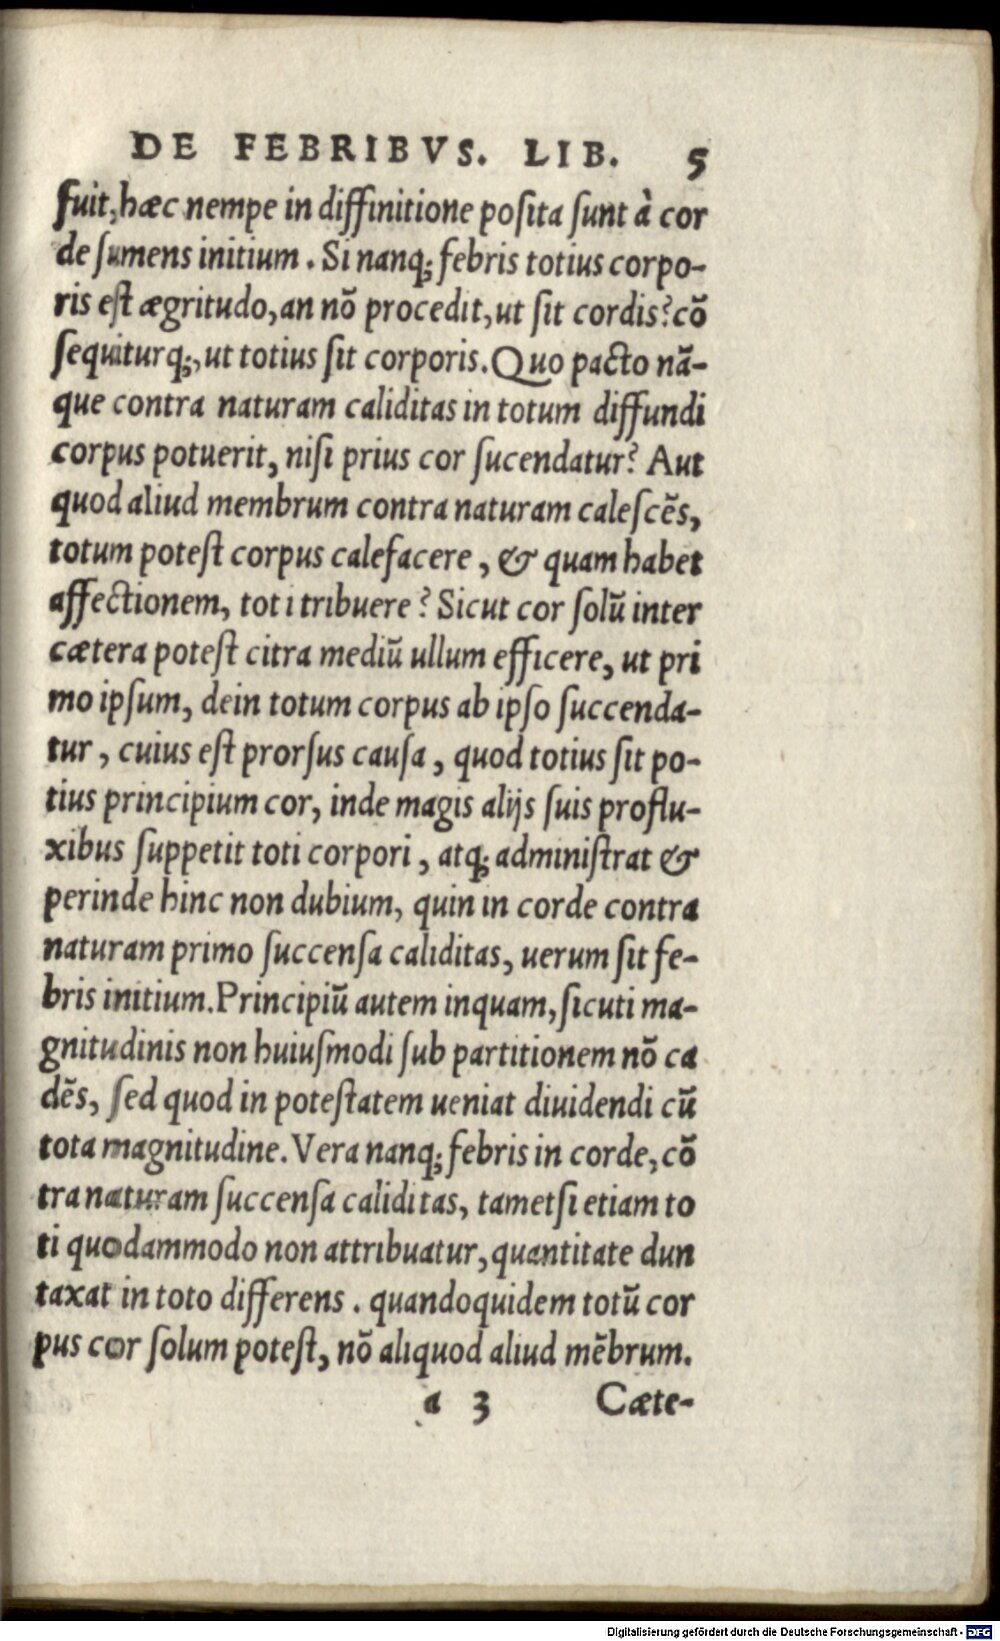 DE FEBRIBVS. LIB. 5
fuit, hæc nempe in diffinitione poſita ſunt à cor
de ſumens initium. Si nanq; febris totius corpo-
ris eſt ægritudo, an nō procedit, ut ſit cordis? cō
ſequiturq;, ut totius ſit corporis. Quo pacto nā-
que contra naturam caliditas in totum diffundi
corpus potuerit, niſi prius cor ſucendatur? Aut
quod aliud membrum contra naturam caleſcēs,
totum poteſt corpus calefacere, & quam habet
affectionem, toti tribuere? Sicut cor ſolū inter
cætera poteſt citra mediū ullum efficere, ut pri
mo ipſum, dein totum corpus ab ipſo ſuccenda-
tur, cuius eſt prorſus cauſa, quod totius ſit po-
tius principium cor, inde magis alijs ſuis proflu-
xibus ſuppetit toti corpori, atq; adminiſtrat &
perinde hinc non dubium, quin in corde contra
naturam primo ſuccenſa caliditas, uerum ſit fe-
bris initium. Principiū autem inquam, ſicuti ma-
gnitudinis non huiuſmodi ſub partitionem nō ca
dēs, ſed quod in poteſtatem ueniat diuidendi cū
tota magnitudine. Vera nanq; febris in corde, cō
tra naturam ſuccenſa caliditas, tametſi etiam to
ti quodammodo non attribuatur, quantitate dun
taxat in toto differens. quandoquidem totū cor
pus cor ſolum poteſt, nō aliquod aliud mēbrum.
a 3 Cæte-
Digitalisierung gefördert durch die Deutsche Forschungsgemeinschaft - DFG